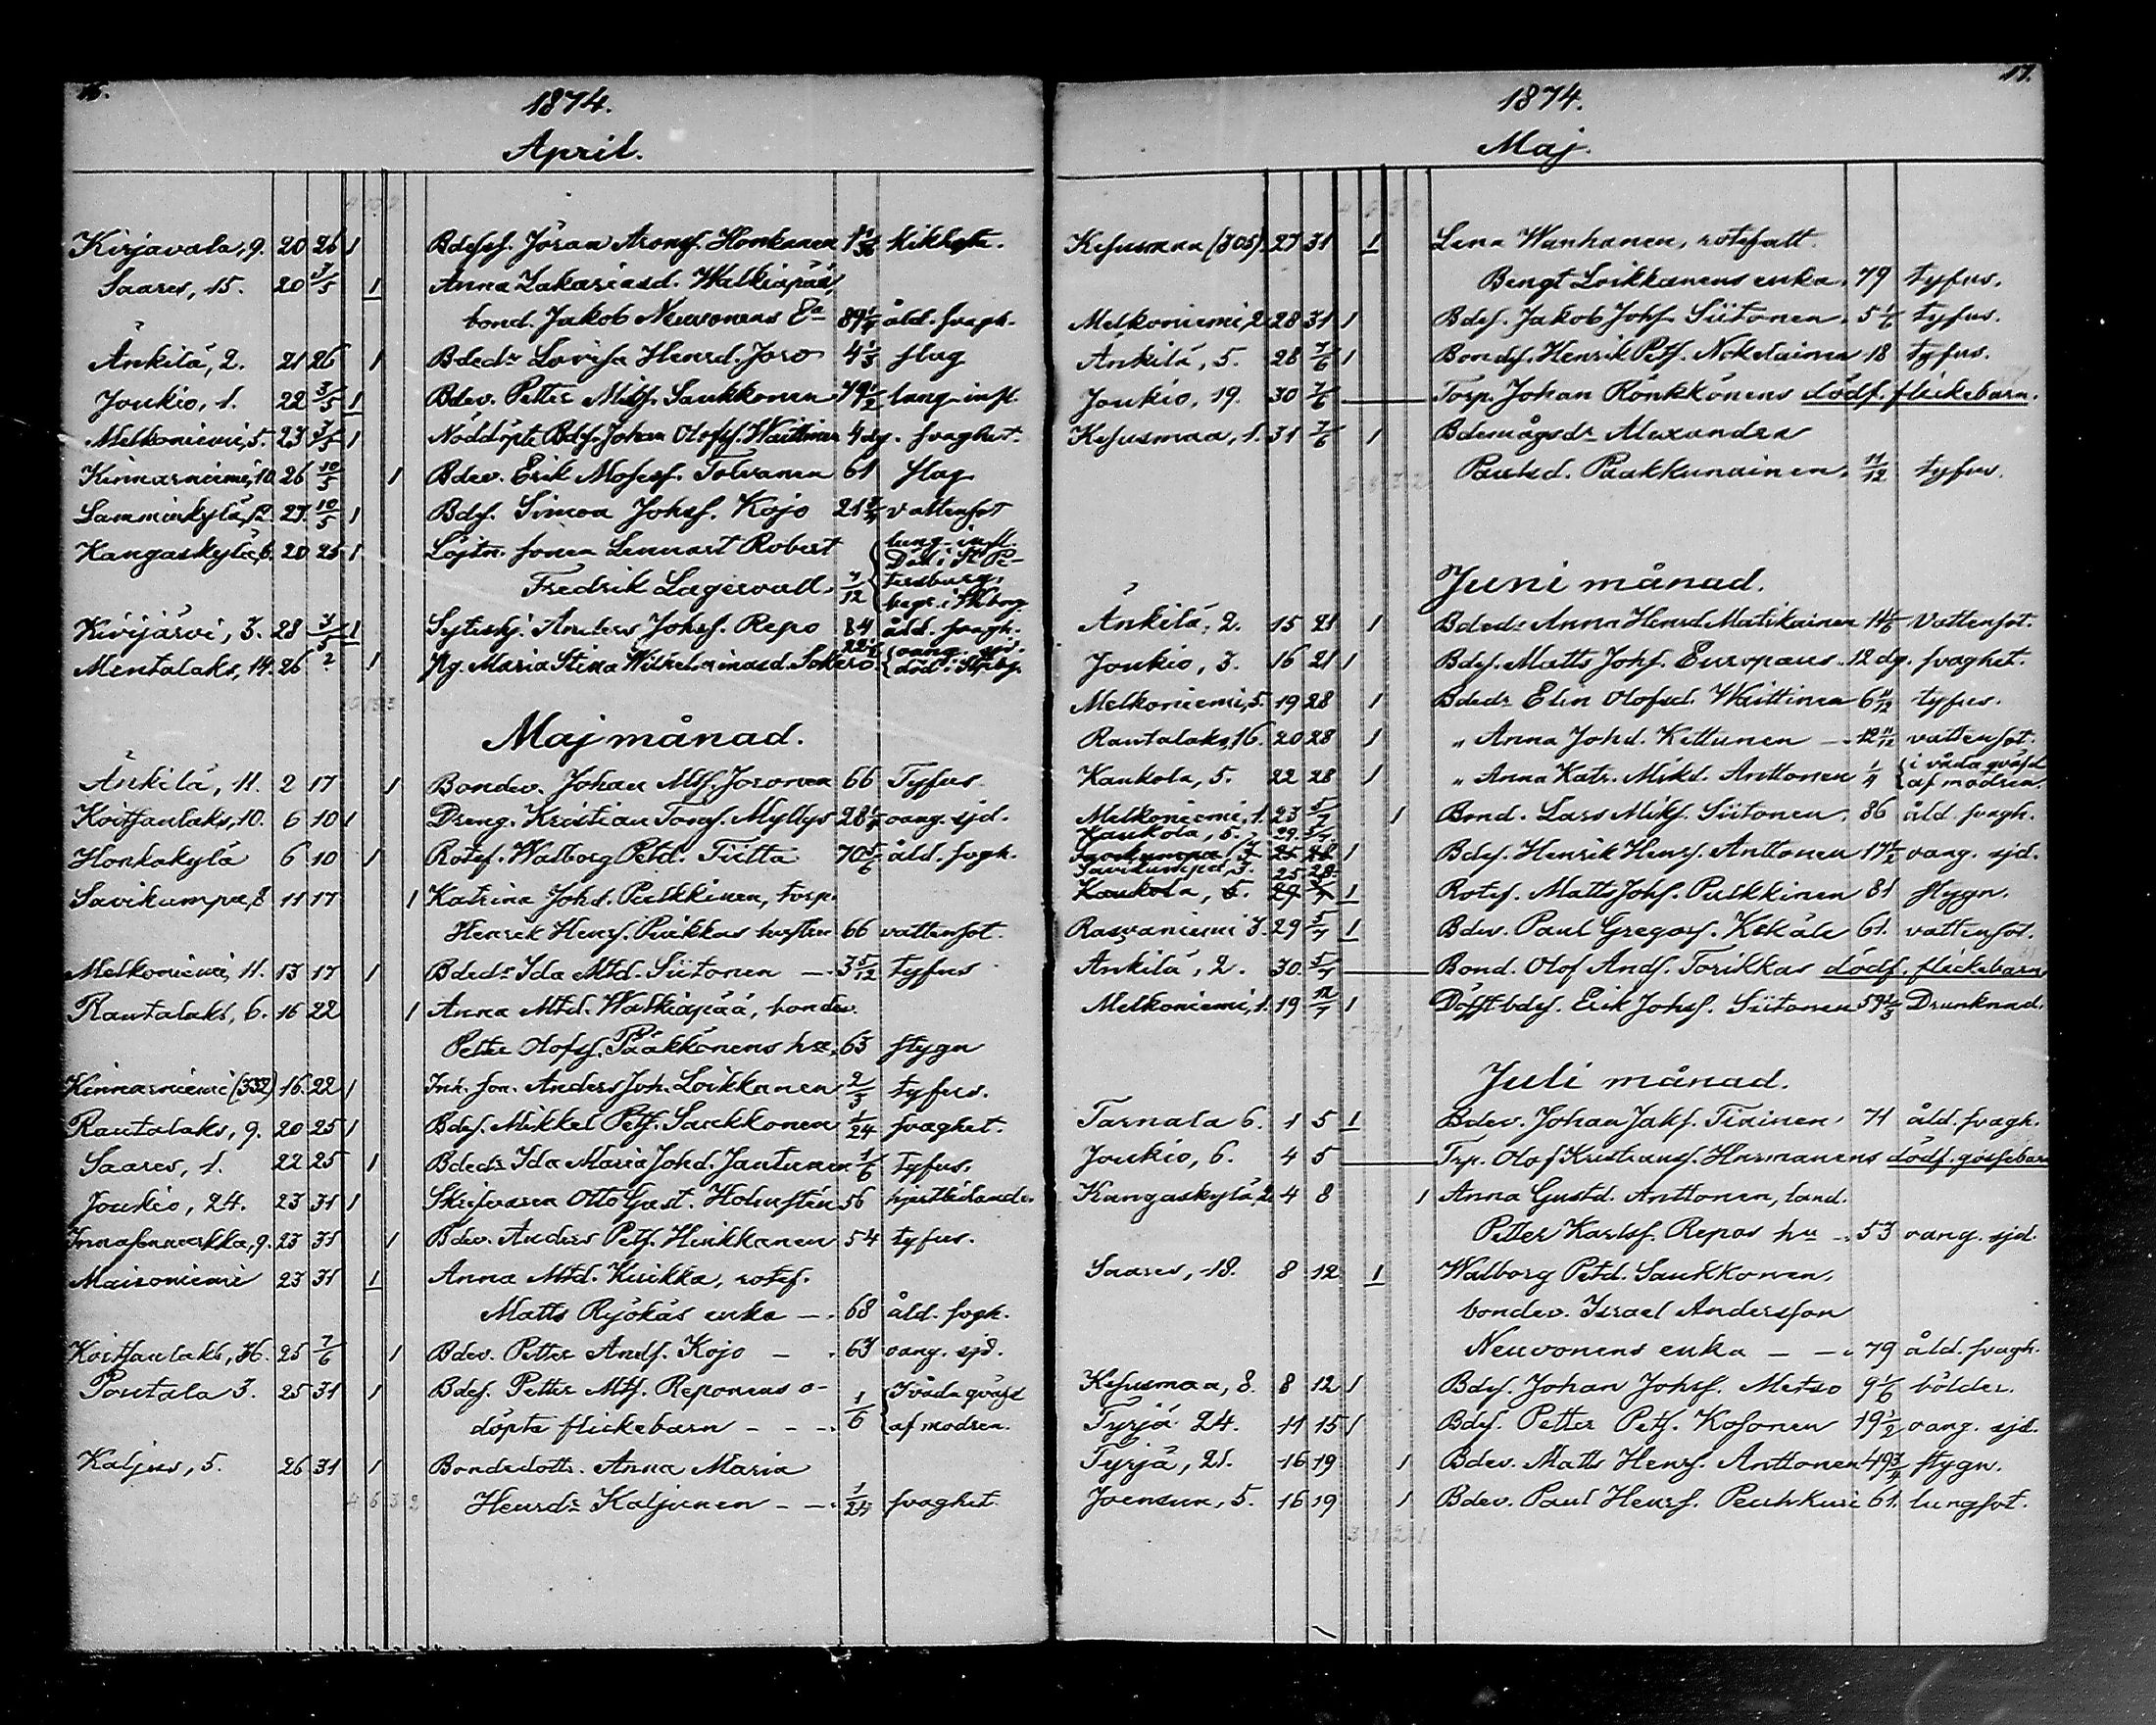 16.
1874.
April.
Kirjavala, 9. 20 26 1 Bdesf. Jöran Aronsf. Honkanen kikhosta.
Saares, 15. 20 3/5 1 Anna Zakariasd. Walkiapää,
bond. Jakob Neuvonens Ea 89 1/4 åld. svagh.
Änkilä, 2. 21 26 1 Bdedr Lovisa Henrd. Joro 4 1/3 slag
Joukio, 1. 22 3/5 1 Bdev. Petter Mikf. Saukkonen 79 1/2 lung-infl.
Melkoniemi, 5. 23 3/5 1 Nöddöpte Bdes. Johan Olofsf. Waittinen 4 dg. svaghet.
Kinnarniemi, 10. 26 10/5 1 Bdev. Erik Mosesf. Tolvanen 61 slag
Samminkylä, 12. 27. 10/5 1 Bds. Simon Johsf. Kojo 21 3/4 vattensot
Kangaskylä, 6. 20 25 1 Löjtn. sonen Lennart Robert lung-infl.
Fredrik Lagervall. 7/12 Död i St Petersburg, begr. i Wiborg
Kivijärvi, 3. 28 3/5 1 Sytiskj. Anders Johsf. Repo 84 åld. svagh.
Mentalaks, 14. 26 ? 1 Pig. Maria Stina Wilhelminasd. Sokero 22 1/2 oang. sjd. död i St. Pbg.
Maj månad.
Änkilä, 11. 2 17 1 Bondev. Johan Mtsf. Joronen 66 Tyfus.
Koitsanlaks, 10. 6 10 1 Dreng. Kristian Tomsf. Myllys 28 oang. sjd.
Honkakylä 6 10 1 Rotef. Walborg Petd. Tiitta 70 5/6 åld. svgh.
Savikumpu, 8 11 17 1 Katrina Johd. Pulkkinen, torp.
Henrik Henrsf. Puikkas hustru 66 vattensot.
Melkoniemi, 11. 13 17 1 Bdedr Ida Mtd. Siitonen 3 5/12 tyfus
Rautalaks, 6. 16 22 1 Anna Mtd. Walkiapää, bondev.
Petter Olofsf. Pääkkönens hu, 63 stygn
Kinnarniemi (332) 16. 22 1 Inh. son. Anders Joh. Loikkanen 2/3 tyfus.
Rautalaks, 9. 20 25 1 Bdes. Mikkel Petf. Saukkonen 1/24 svaghet.
Saares, 1. 22 25 1 Bdedr Ida Maria Johd. Jantunen 1/6 tyfus.
Joukio, 24. 23 31 1 Skrifvaren Otto Gust. Holmstén 56 hjertlidande.
23 31 1 Bdev. Anders Petf. Hinkkanen 54 tyfus.
Maironiemi 23 31 1 Anna Mtd. Kuikka, rotef.
Matts Ryökäs enka — 68 åld. svgh.
Koitsanlaks, 36. 25 7/6 1 Bdev. Petter Andf. Kojo — 63 oang. sjd.
Poutala 3. 25 31 1 Bdes. Petter Mtsf. Reponens o-
döpta flickebarn - - - 1/6 I våda qväfd af modren.
Kaljus, 5. 26 31 1 Bondedottr. Anna Maria
Henrdr Kaljunen - - 1/24 svaghet.
4 6 3 2
17.
1874.
Maj.
Kesusmaa (305) 27 31 1 Lena Wanhanen, rotefatt.
Bengt Loikkanens enka, 79 tyfus.
Melkoniemi, 2. 28 31 1 Bdes. Jakob Johsf Siitonen, 5 1/6 tyfus.
Änkilä, 5. 28 7/6 1 Bondes. Henrik Petf. Nokelainen 18 tyfus.
Joukio, 19. 30 7/6 Torp. Johan Rönkkönens dödf. flickebarn.
Kesusmaa, 1. 31 7/6 1 Bdemågsdr Alexandra
Paulsd. Paakkunainen, 11/12 tyfus.
Juni månad.
Änkilä, 2. 15 21 1 Bdedr Anna Henrd Matikainen 14 1/6 Vattensot.
Joukio, 3. 16 21 1 Bdes. Matts Johf. Europaeus. 12 dg. svaghet.
Melkoniemi, 5. 19 28 1 Bdedr Elin Olofsd. Waittinen 6 11/12 tyfus.
Rautalaks, 16. 20 28 1 „ Anna Johd. Kettunen — 12 11/12 vattensot.
Kaukola, 5. 22 28 1 „ Anna Katr. Mikd. Anttonen 1/4 i våda qväfd af modren.
Melkoniemi, 1. 23 5/7 1 Bond. Lars Mikf. Siitonen, 86 åld. svagh.
Kaukola, 5. 29. 5/7
25 28 1 Bdes. Henrik Henrsf. Anttonen 17 1/2 oang. sjd.
Savikumpu, 3. 25 28.
Kaukola, 5. 29 5/7 1 Rotef. Matts Johsf. Pulkkinen 81 stygn.
Rasvaniemi 3. 29 5/7 1 Bdev. Paul Gregorsf. Kekäle 61. vattensot.
Änkilä, 2. 30. 5/7 Bond. Olof Andf. Torikkas dödf. flickebarn
Melkoniemi, 1. 19 12/7 1 Döfst. bdes. Erik Johsf. Siitonen 59 1/3 Drunknad.
Juli månad.
Tarnala 6. 1 5 1 Bdev. Johan Jakf. Tiainen, 71 åld. svagh.
Joukio, 6. 4 5 Trp. Olof Kristiansf. Hurmanens dödf. gossebarn
Kangaskylä, 2 4 8 1 Anna Gustd. Anttonen, land.
Petter Karlsf. Repos hu - 53 oang. sjd.
Saares, 18. 8 12 1 Walborg Petd. Saukkonen,
bondev. Israel Andersson
Neuvonens enka — — 79 åld. svagh.
Kesusmaa, 8. 8 12 1 Bdes. Johan Johsf. Metso 9 1/6 bölder.
Tyrjä 24. 11 15 1 Bdes. Petter Petf. Kosonen 19 1/2 oang. sjd.
Tyrjä, 21. 16 19 1 Bdev. Matts Henrsf. Anttonen 49 3/4 stygn.
Joensuu, 5. 16 19 1 Bdev. Paul Henrsf. Peuhkuri 61. lungsot.